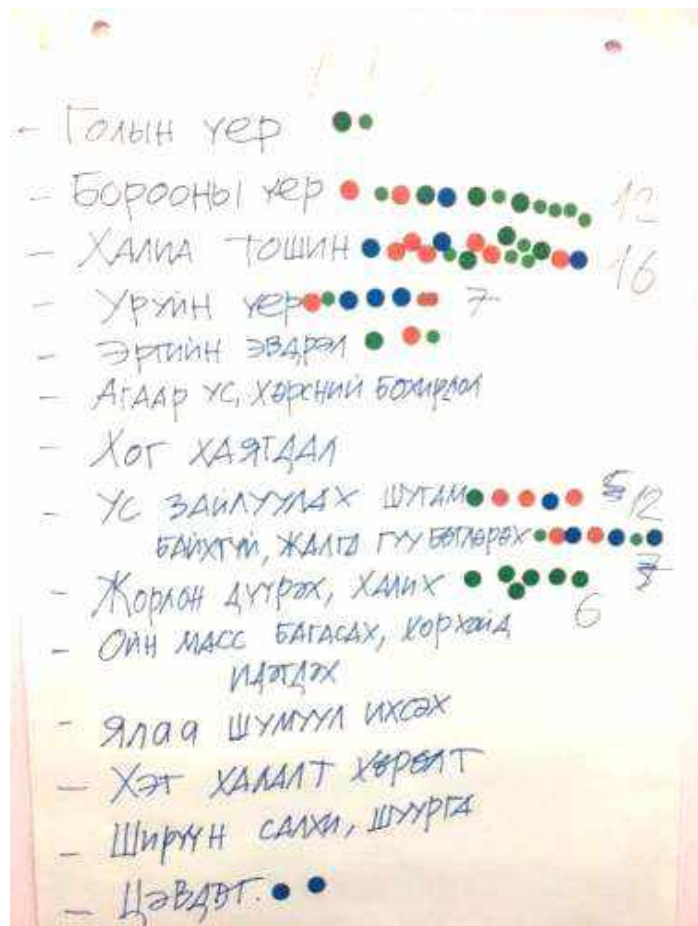 - Голын үер
- Борооны үер 12
- Халиа тошин 16
- Уруйн үер 7
- Эргийн эвдрэл
- Агаар ус, хөрсний бохирдол
- Хог хаягдал
- Ус зайлуулах шугам 5 12
байхгүй, жалга гуу бөглөрөх 7
- Жорлон дүүрэх, халих 6
- Ойн масс багасах, хорхойд
идэгдэх
- Ялаа шумуул ихсэх
- Хэт халалт хөрөлт
- Ширүүн салхи, шуурга
- Цэвдэг.